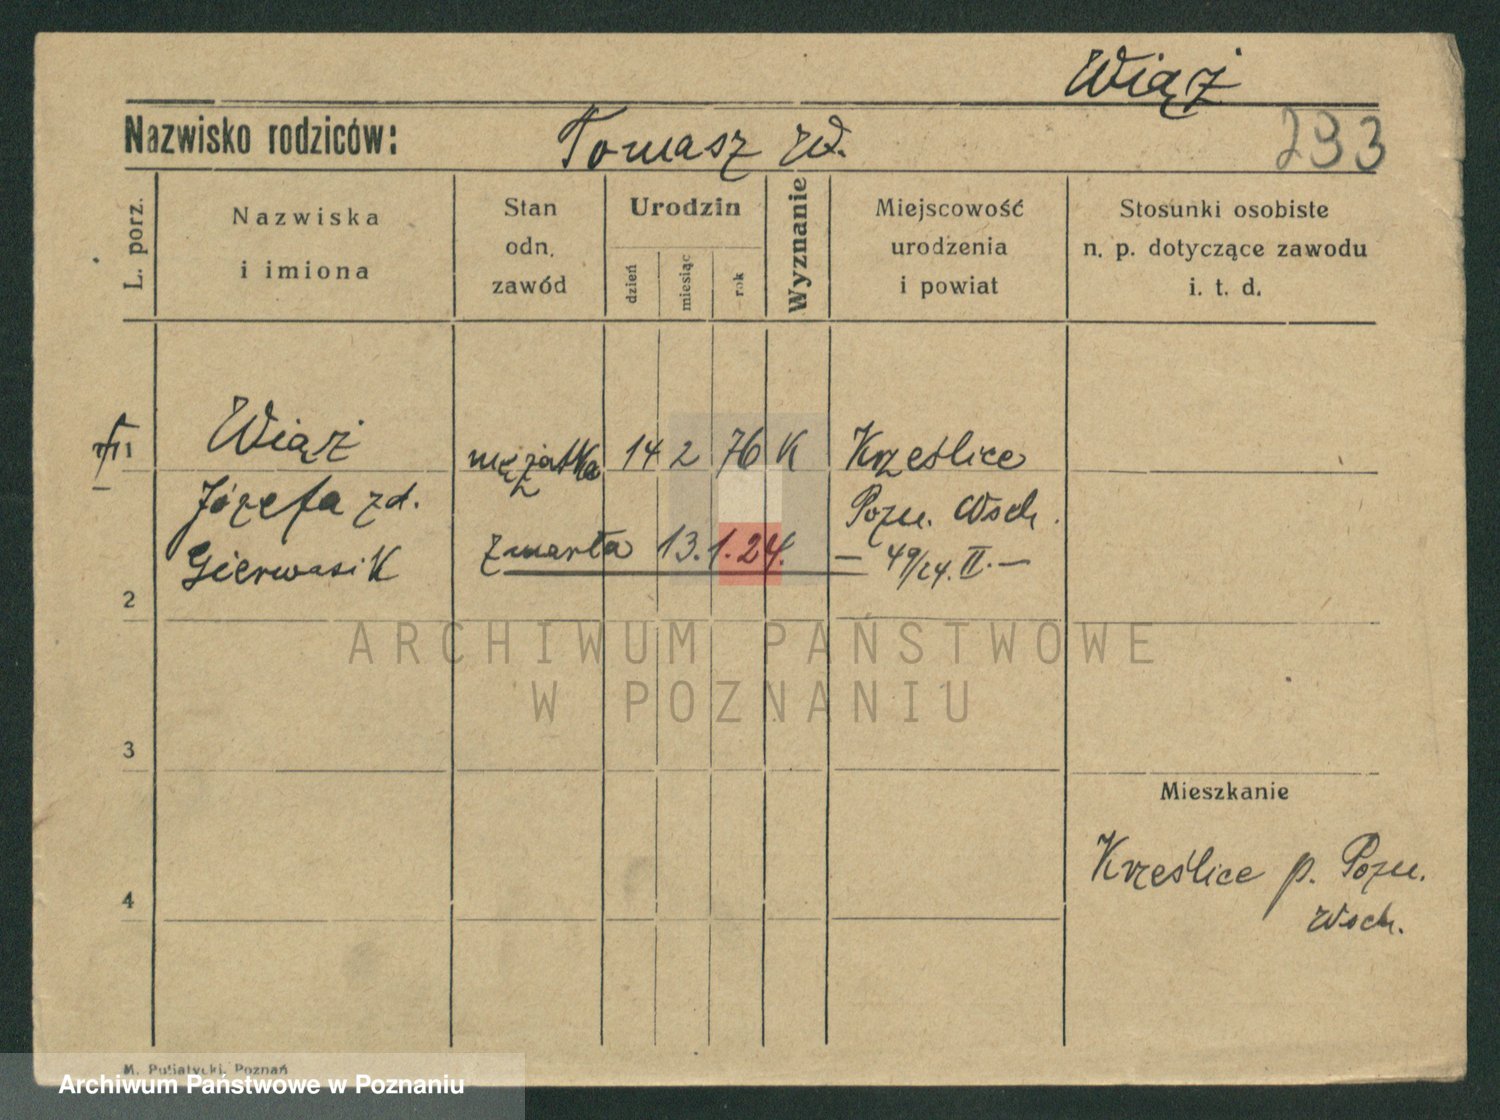 Wiąz
Nazwisko rodziców: Tomasz zd.
293
L. porz.
Nazwiska
i imiona
Stan
odn.
zawód
Urodzin
dzień
miesiąc
rok
Wyznanie
Miejscowość
urodzenia
i powiat
Stosunki osobiste
n. p. dotyczące zawodu
i. t. d.
Wiąz mężatka 14 2 76 K Krześlice
Józefa zd. Pozn. Wsch.
Gierwasik zmarła 13.1.24. — 49/24. II. —
2
ARCHIWUM PAŃSTWOWE
W POZNANIU
3
Mieszkanie
Krześlice p. Pozn.
Wsch.
4
M. Putiatycki, Poznań
Archiwum Państwowe w Poznaniu